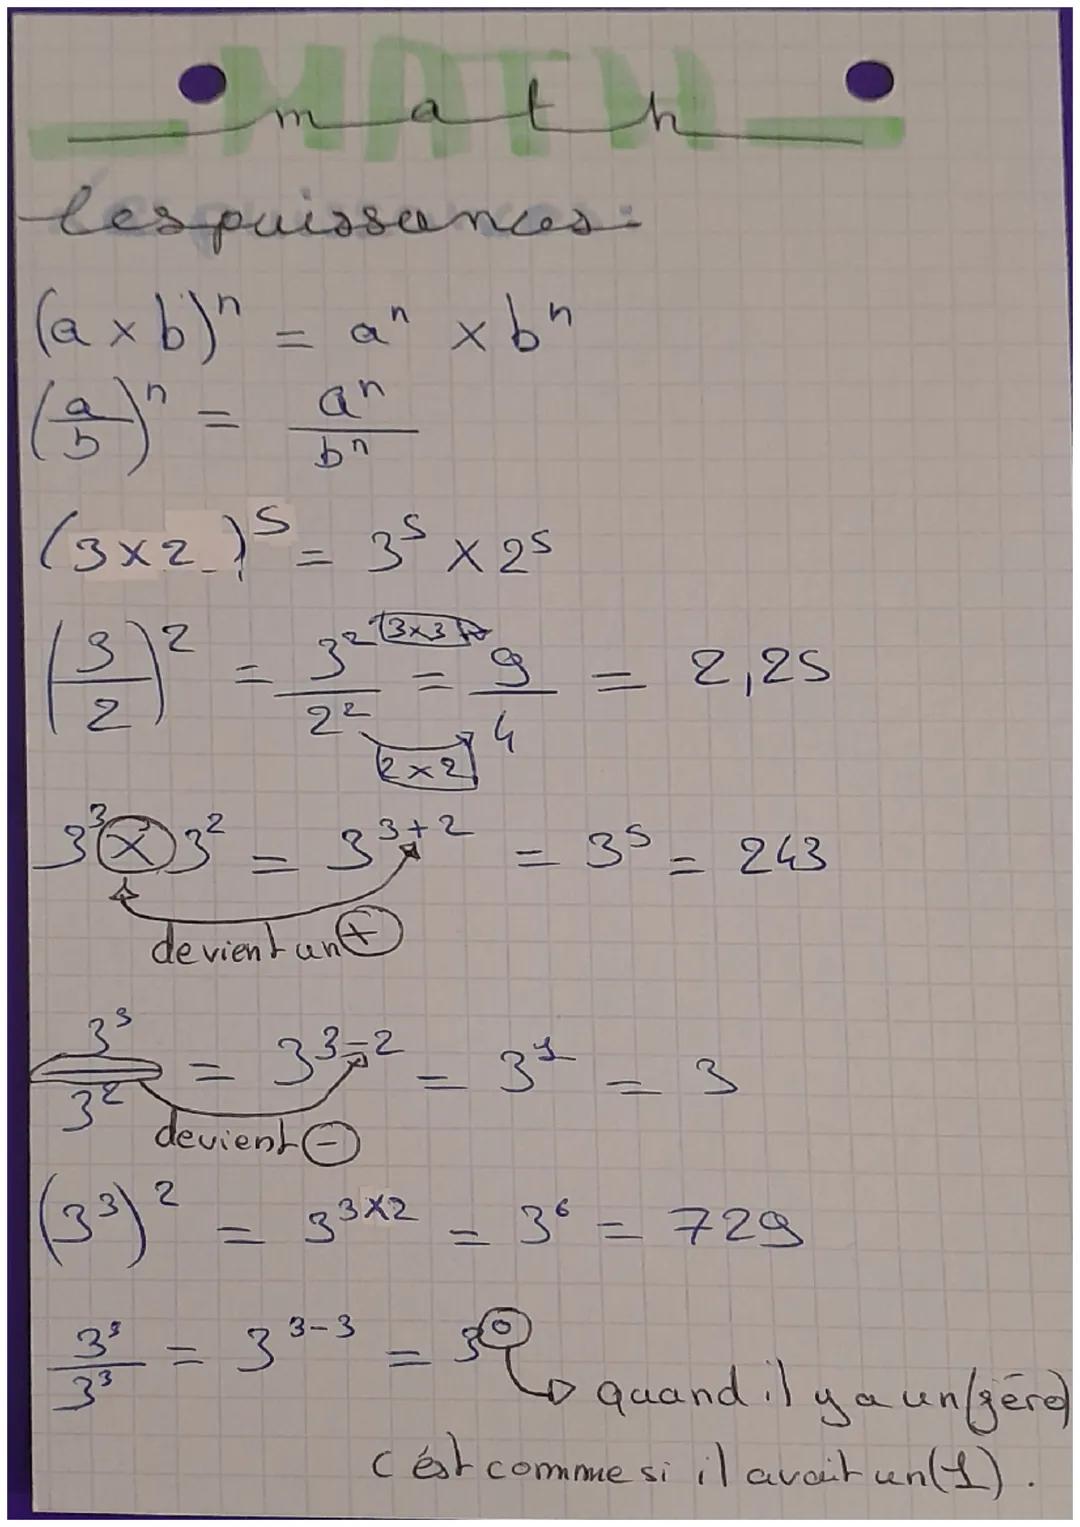 MATH
math
les puissances:
(a × b)ⁿ = aⁿ × bⁿ
(a/b)ⁿ = aⁿ/bⁿ
(3×2)⁵ = 3⁵ × 2⁵
(3/2)² = 3²/2² = 9/4 = 2,25
3×3
2×2
3³ × 3² = 3³⁺² = 3⁵ = 243
devient un +
3³/3² = 3³⁻² = 3¹ = 3
devient -
(3³)² = 3³ˣ² = 3⁶ = 729
3³/3³ = 3³⁻³ = 3⁰
quand il y a un (zéro)
c'ést comme si il avait un (1).